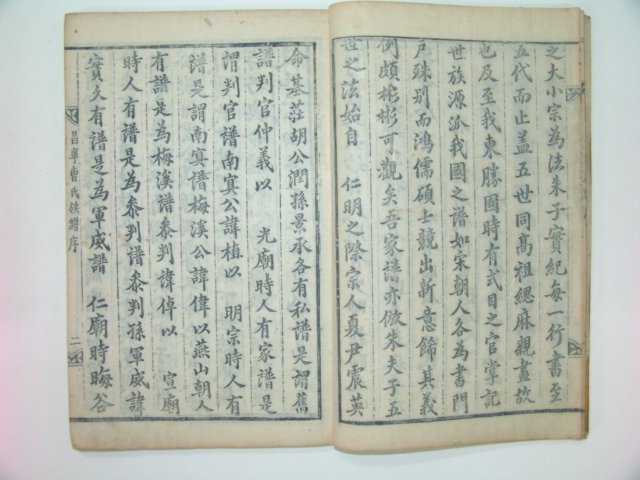 之大小宗為法朱子實紀每一行書至
五代而止盖五世同高祖緦麻親盡故
也及至我東勝國時有式目之官掌記
世族源派我國之譜如宋朝人各為書門
戶殊别而鴻儒碩士競出新意餙其義
例頗彬彬可觀矣吾家譜亦倣朱夫子五
世之法始自 仁明之際宗人夏尹震英
命基莊胡公潤孫景承各有私譜是謂舊
譜判官仲義以 光廟時人有家譜是
謂判官譜南㝠公諱植以 明宗時人有
譜是謂南㝠譜梅溪公諱偉以燕山朝人
有譜是為梅溪譜叅判諱倬以 宣廟
時人有譜是為叅判譜叅判孫軍威諱
實久有譜是為軍威譜 仁廟時晦谷
昌寧曺氏族譜序 二